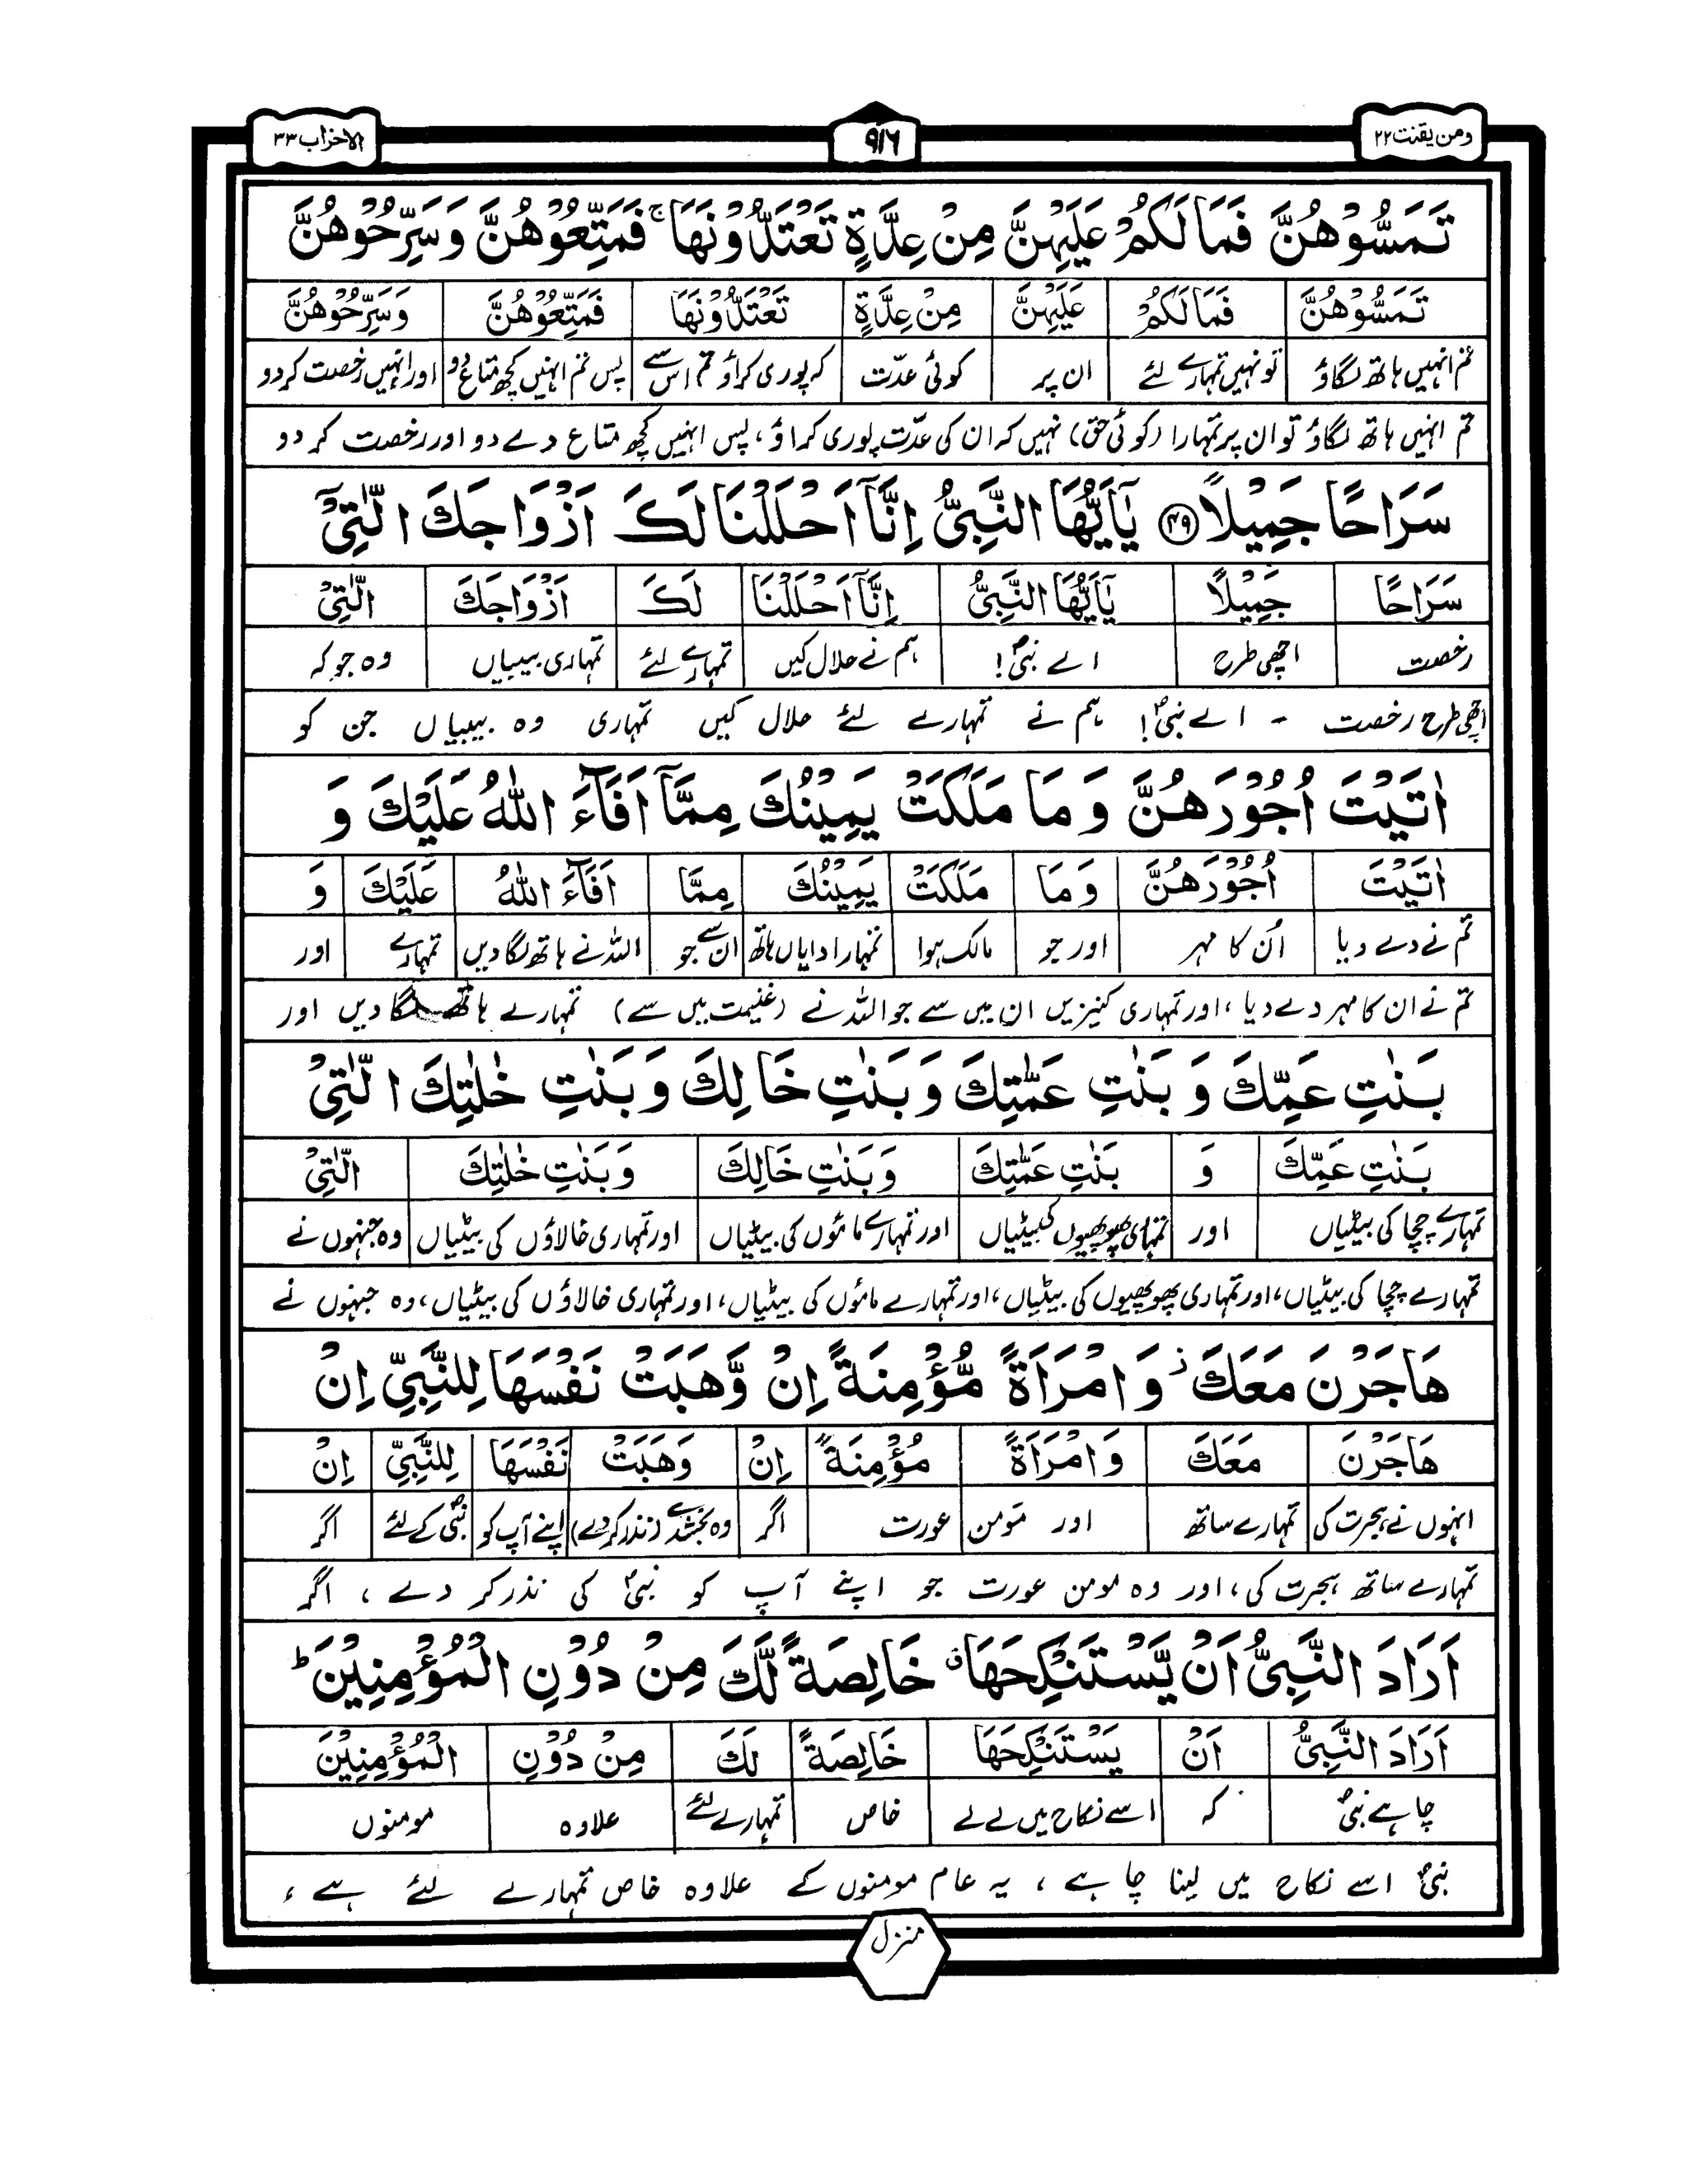 ومن یقنت ۲۲
۹۱۶
الاحزاب ۳۳
تَمَسُّوْهُنَّ فَمَا لَكُمْ عَلَيْهِنَّ مِنْ عِدَّةٍ تَعْتَدُّوْنَهَا ۚ فَمَتِّعُوْهُنَّ وَسَرِّحُوْهُنَّ
تَمَسُّوْهُنَّ فَمَا لَكُمْ عَلَيْهِنَّ مِنْ عِدَّةٍ تَعْتَدُّوْنَهَا فَمَتِّعُوْهُنَّ وَسَرِّحُوْهُنَّ
تم انہیں ہاتھ لگاؤ تو نہیں تمہارے لئے ان پر کوئی عدّت کہ پوری کراؤ تم اس سے پس تم انہیں کچھ متاع دو اور انہیں رخصت کردو
تم انہیں ہاتھ لگاؤ تو ان پر تمہارا (کوئی حق) نہیں کہ ان کی عدّت پوری کراؤ، پس انہیں کچھ متاع دے دو اور رخصت کر دو
سَرَاحًا جَمِيْلًا ۴۹ يٰٓاَيُّهَا النَّبِىُّ اِنَّآ اَحْلَلْنَا لَكَ اَزْوَاجَكَ الّٰتِىْٓ
سَرَاحًا جَمِيْلًا يٰٓاَيُّهَا النَّبِىُّ اِنَّآ اَحْلَلْنَا لَكَ اَزْوَاجَكَ الّٰتِىْٓ
رخصت اچھی طرح اے نبیؐ! ہم نے حلال کیں تمہارے لئے تمہاری بیبیاں وہ جو کہ
اچھی طرح رخصت - اے نبیؐ! ہم نے تمہارے لئے حلال کیں تمہاری وہ بیبیاں جن کو
اٰتَيْتَ اُجُوْرَهُنَّ وَ مَا مَلَكَتْ يَمِيْنُكَ مِمَّآ اَفَآءَ اللّٰهُ عَلَيْكَ وَ
اٰتَيْتَ اُجُوْرَهُنَّ وَ مَا مَلَكَتْ يَمِيْنُكَ مِمَّا اَفَآءَ اللّٰهُ عَلَيْكَ وَ
تم نے دے دیا اُن کا مہر اور جو مالک ہوا تمہارا دایاں ہاتھ ان سے جو اللہ نے ہاتھ لگا دیں تمہارے اور
تم نے ان کا مہر دے دیا، اور تمہاری کنیزیں ان میں سے جو اللہ نے (غنیمت میں سے) تمہارے ہاتھ لگا دیں اور
بَنٰتِ عَمِّكَ وَ بَنٰتِ عَمّٰتِكَ وَ بَنٰتِ خَالِكَ وَ بَنٰتِ خٰلٰتِكَ الّٰتِىْ
بَنٰتِ عَمِّكَ وَ بَنٰتِ عَمّٰتِكَ وَ بَنٰتِ خَالِكَ وَ بَنٰتِ خٰلٰتِكَ الّٰتِىْ
تمہارے چچا کی بیٹیاں اور تمہاری پھوپھیوں کی بیٹیاں اور تمہارے ماموں کی بیٹیاں اور تمہاری خالاؤں کی بیٹیاں وہ جنہوں نے
تمہارے چچا کی بیٹیاں، اور تمہاری پھوپھیوں کی بیٹیاں، اور تمہارے ماموں کی بیٹیاں، اور تمہاری خالاؤں کی بیٹیاں، وہ جنہوں نے
هَاجَرْنَ مَعَكَ ۫ وَ امْرَاَةً مُّؤْمِنَةً اِنْ وَّهَبَتْ نَفْسَهَا لِلنَّبِىِّ اِنْ
هَاجَرْنَ مَعَكَ وَ امْرَاَةً مُؤْمِنَةً اِنْ وَهَبَتْ نَفْسَهَا لِلنَّبِىِّ اِنْ
انہوں نے ہجرت کی تمہارے ساتھ اور مؤمن عورت اگر وہ بخشدے (نذر کر دے) اپنے آپ کو نبیؐ کے لئے اگر
تمہارے ساتھ ہجرت کی، اور وہ مومن عورت جو اپنے آپ کو نبیؐ کی نذر کر دے، اگر
اَرَادَ النَّبِىُّ اَنْ يَّسْتَنْكِحَهَا ۗ خَالِصَةً لَّكَ مِنْ دُوْنِ الْمُؤْمِنِيْنَ ؕ
اَرَادَ النَّبِىُّ اَنْ يَسْتَنْكِحَهَا خَالِصَةً لَكَ مِنْ دُوْنِ الْمُؤْمِنِيْنَ
چاہے نبیؐ کہ اسے نکاح میں لے لے خاص تمہارے لئے علاوہ مومنوں
نبیؐ اسے نکاح میں لینا چاہے، یہ عام مومنوں کے علاوہ خاص تمہارے لئے ہے ،
منزل